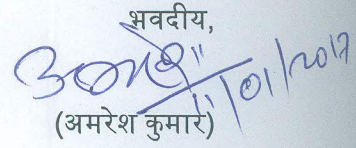 भवदीय,
अमरेश
11/01/2017
(अमरेश कुमार)